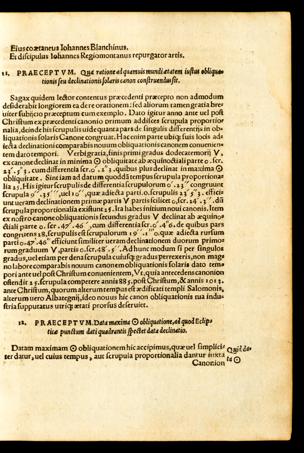 Eius coætaneus Iohannes Blanchinus.
Et discipulus Iohannes Regiomontanus repurgator artis.
11. PRAECEPTVM. Qua ratione ad quamuis mundi ætatem iustus obliquationis
seu declinationis solaris canon construendus sit.
Sagax quidem lector contentus præcedenti præcepto non admodum
desiderabit longiorem ea de re orationem: sed aliorum tamen gratia breuiter
subijcio præceptum cum exemplo. Dato igitur anno ante uel post
Christum ex præcedenti canonio primum addisces scrupula proportionalia,
deinde his scrupulis uide quanta pars de singulis differentijs in obliquationis
solaris Canone congruat. Hæc enim parte ubiq; suis locis adiecta
declinationi comparabis nouum obliquationis canonem conuenientem
dato tempori. Verbi gratia, finis primi gradus dodecatemorij V,
ex canone declinat in minima ☉ obliquitate ab æquinoctiali parte 0. scr.
23'. 5''. cum differentia scr. 0'. 23''. quibus plus declinat in maxima ☉
obliquitate. Sint iam ad datum quoddã tempus scrupula proportionalia
25. His igitur scrupulis de differentia scrupulorum
scrupula 9''. 35''', uel 10'', quæ adiecta parti. 0. scrupulis 23'. 5''. efficiunt
ueram declinationem primæ partis V
scrupula proportionalia existunt 25. Ita habes initium noui canonis. Item
ex nostro canone obliquationis secundus gradus V declinat ab æquinoctiali
parte 0. scr. 47'. 46'', cum differentia scr. 0'. 46''. de quibus pars
congruens 25. scrupulis est scrupulorum 19''. 10'''. quæ adiecta rursum
parti 0. 47'. 46''. efficiunt similiter ueram declinationem duorum primorum
graduum V, partis 0. scr. 48'. 5''. Ad hunc modum si per singulos
gradus, uel etiam per dena scrupula cuiusq; gradus perrexeris, non magno
labore comparabis nouum canonem obliquationis solaris dato tempori
ante uel post Christum conuenientem, Vt, quia antecedens canonion
ostendit 25. scrupula competere annis 885. post Christum, & annis 1013.
ante Christum, quorum alterum tempus est ædificati templi Salomonis,
alterum uero Albategnij, ideo nouus hic canon obliquationis tua industria
supputatus utriq; ætati prorsus deseruit.
12. PRAECEPTVM. Data maxima ☉ obliquatione, ad quod Eclipticæ
punctum dati quadrantis spectet data declinatio.
Datam maximam ☉ obliquationem hic accipimus, quæ uel simpliciter
datur, uel cuius tempus, aut scrupula proportionalia dantur iuxta
Canonion